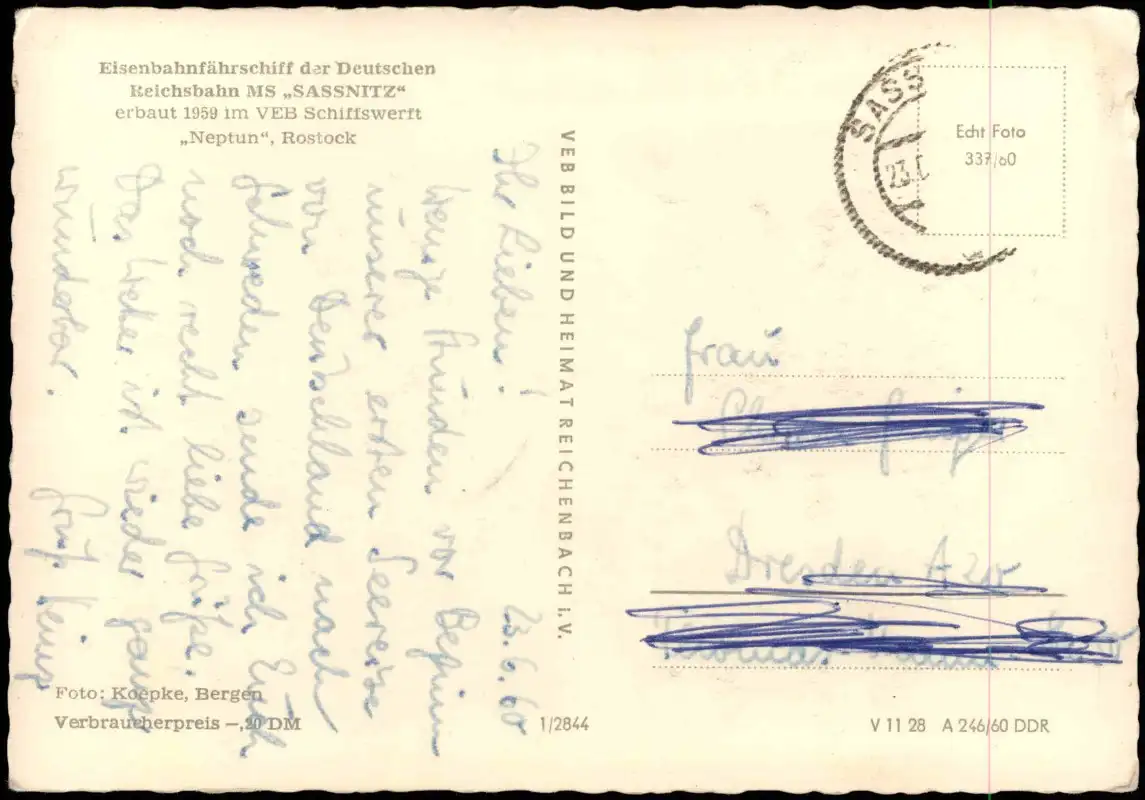 Eisenbahnfährschiff der Deutschen
Reichsbahn MS „SASSNITZ“
erbaut 1959 im VEB Schiffswerft
„Neptun“, Rostock
Ihr Lieben! 23.6.60
Wenige Stunden vor Beginn
unserer ersten Seereise
von Deutschland nach
Schweden sende ich Euch
noch recht liebe Grüße.
Das Wetter ist wieder ganz
wunderbar.
Gruß
Foto: Koepke, Bergen
Verbraucherpreis –,20 DM
VEB BILD UND HEIMAT REICHENBACH i. V.
1/2844
SASS
23.
Echt Foto
337/60
Frau
Dresden A 20
V 11 28 A 246/60 DDR